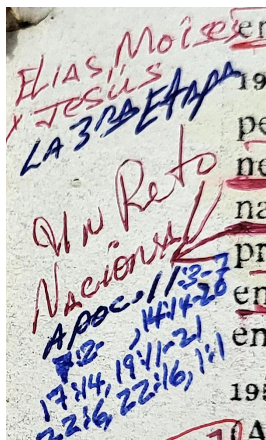 ELIAS, MOISES
X JESÚS
LA 3RA ETAPA
Un Reto
Nacional
APOC. 11:3-7
7:2- , 14:14-20
17:14, 19:11-21
22:6, 22:16, 1:1
en
19
pe
ne
na
pr
en
en
19
(A